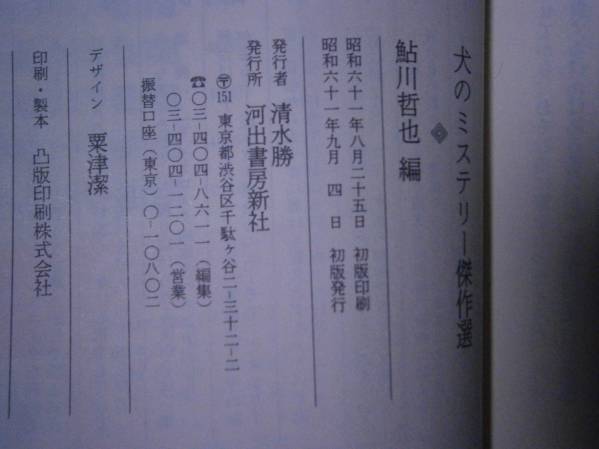 犬のミステリー傑作選
鮎川哲也 編
昭和六十一年八月二十五日 初版印刷
昭和六十一年九月 四 日 初版発行
発行者 清水勝
発行所 河出書房新社
〒151 東京都渋谷区千駄ヶ谷二-三十二-二
☎〇三-四〇四-八六一一（編集）
〇三-四〇四-一二〇一（営業）
振替口座（東京）〇-一〇八〇二
デザイン 粟津潔
印刷・製本 凸版印刷株式会社